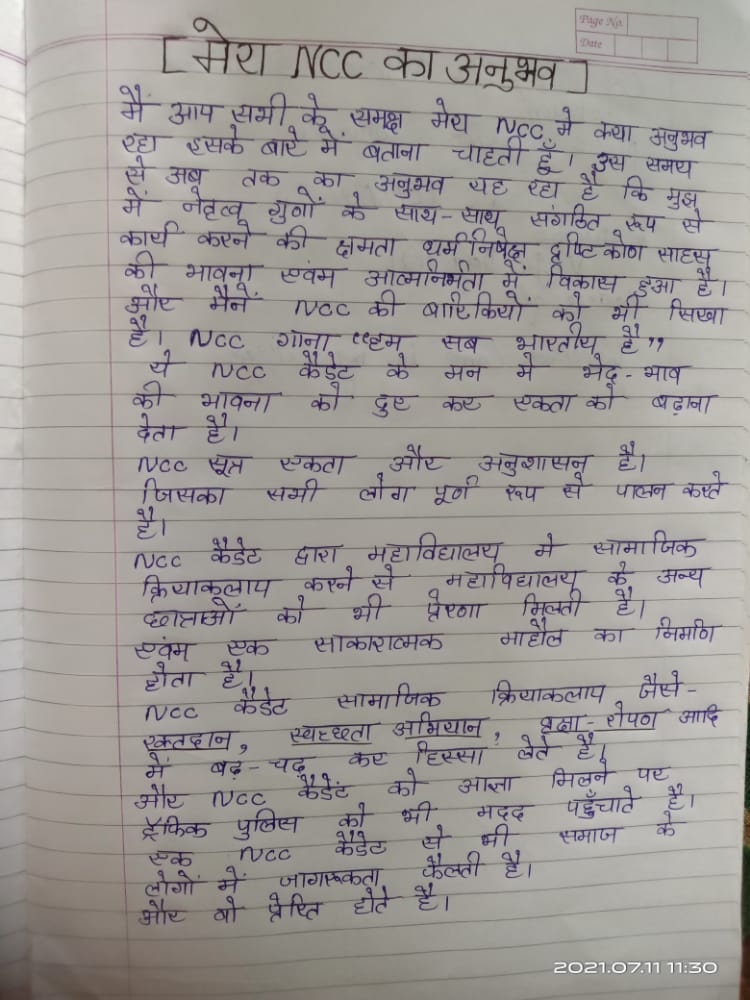 Page No.
Date
[मेरा NCC का अनुभव]
मैं आप सभी के समक्ष मेरा NCC में क्या अनुभव
रहा इसके बारे में बताना चाहती हूँ। उस समय
से अब तक का अनुभव यह रहा है कि मुझ
में नेतृत्व गुणों के साथ-साथ संगठित रूप से
कार्य करने की क्षमता धर्मनिपेक्ष दृष्टिकोण साहस
की भावना एवंम आत्मनिर्भता में विकास हुआ है।
और मैनें NCC की बारिकियों को भी सिखा
है। NCC गाना "हम सब भारतीय है"
ये NCC कैडेट के मन मे भेद-भाव
की भावना को दुर कर एकता को बढ़ाना
देता है।
NCC सूत्र एकता और अनुशासन है।
जिसका सभी लोग पूर्ण रूप से पालन करते
है।
NCC कैडेट द्वारा महाविद्यालय मे सामाजिक
क्रियाकलाप करने से महाविद्यालय के अन्य
छात्राओं को भी प्रेरणा मिलती है।
एवंम एक साकारात्मक माहौल का निर्माण
होता है।
NCC कैडेट सामाजिक क्रियाकलाप जैसे-
रक्तदान, स्वच्छता अभियान, वृक्षा-रोपण आदि
में बढ़-चढ़ कर हिस्सा लेते है।
और NCC कैडेट को आज्ञा मिलने पर
ट्रैफिक पुलिस को भी मदद पहुँचाते है।
एक NCC कैडेट से भी समाज के
लोगों में जागरूकता फैलती है।
और वो प्रेरित होते है।
2021.07.11 11:30